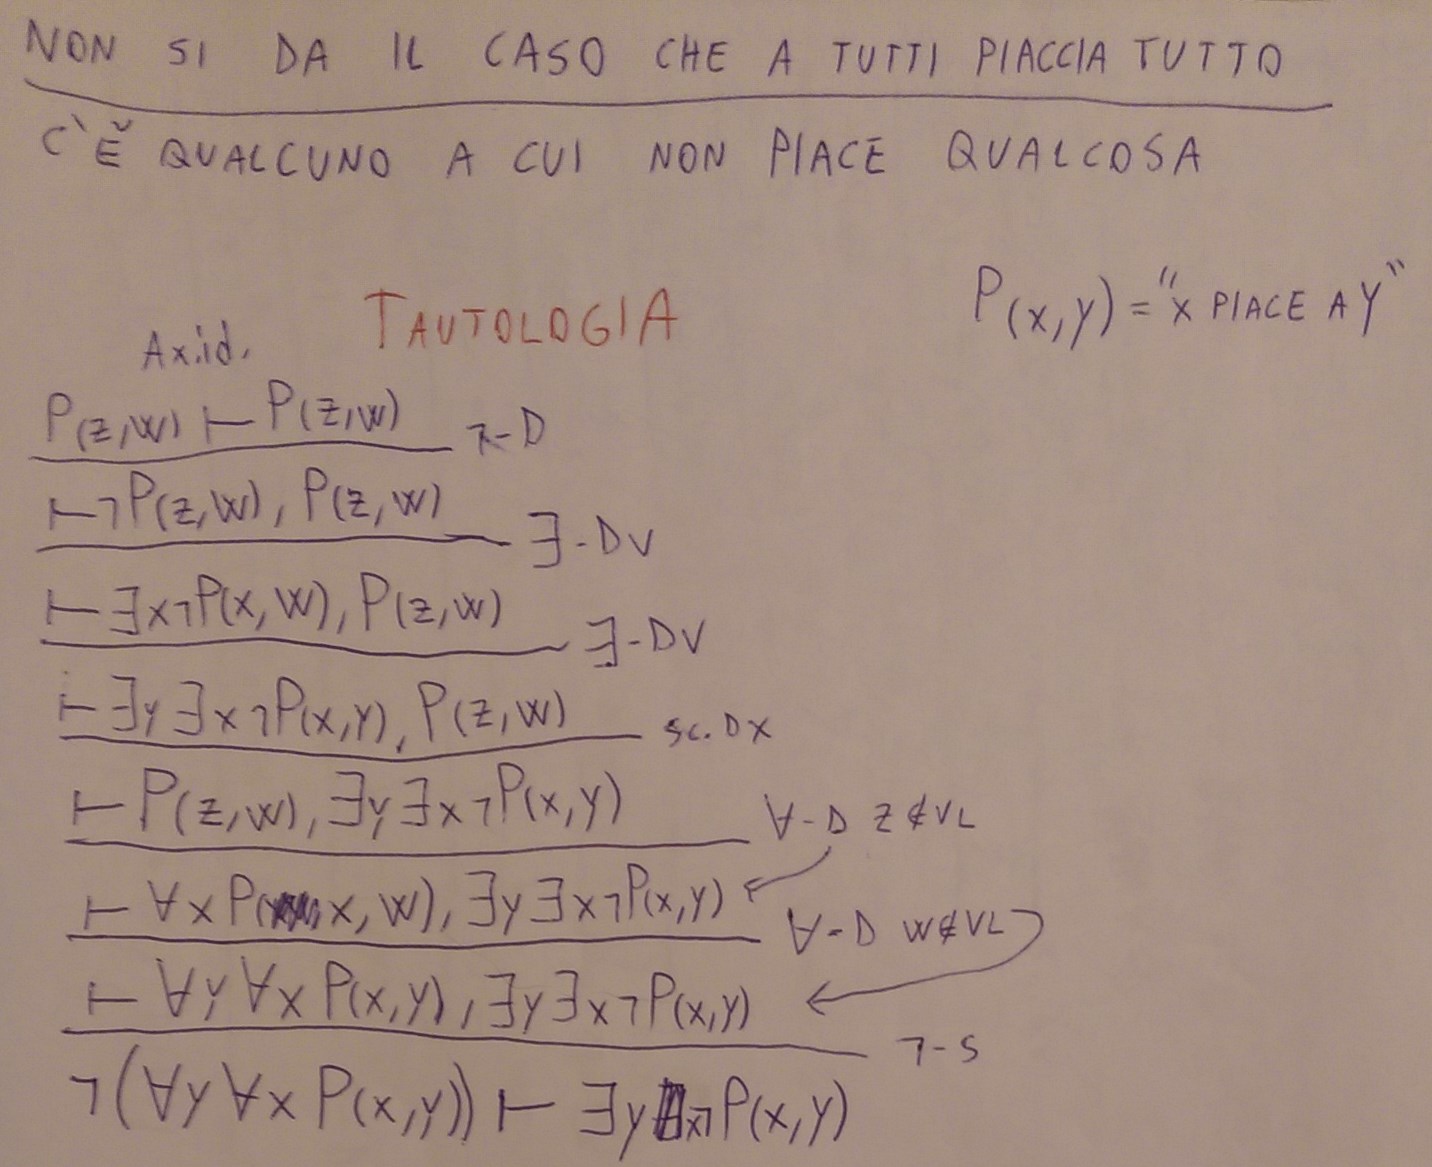 NON SI DA IL CASO CHE A TUTTI PIACCIA TUTTO
C'È QUALCUNO A CUI NON PIACE QUALCOSA
P(x,y) = "x PIACE A y"
TAUTOLOGIA
Ax.id.
P(z,w) ⊢ P(z,w) ¬-D
⊢ ¬P(z,w), P(z,w) ∃-DV
⊢ ∃x¬P(x,w), P(z,w) ∃-DV
⊢ ∃y∃x¬P(x,y), P(z,w) sc.DX
⊢ P(z,w), ∃y∃x¬P(x,y) ∀-D z∉VL
⊢ ∀xP(x,w), ∃y∃x¬P(x,y) ∀-D w∉VL
⊢ ∀y∀xP(x,y), ∃y∃x¬P(x,y) ¬-S
¬(∀y∀xP(x,y)) ⊢ ∃y∃x¬P(x,y)